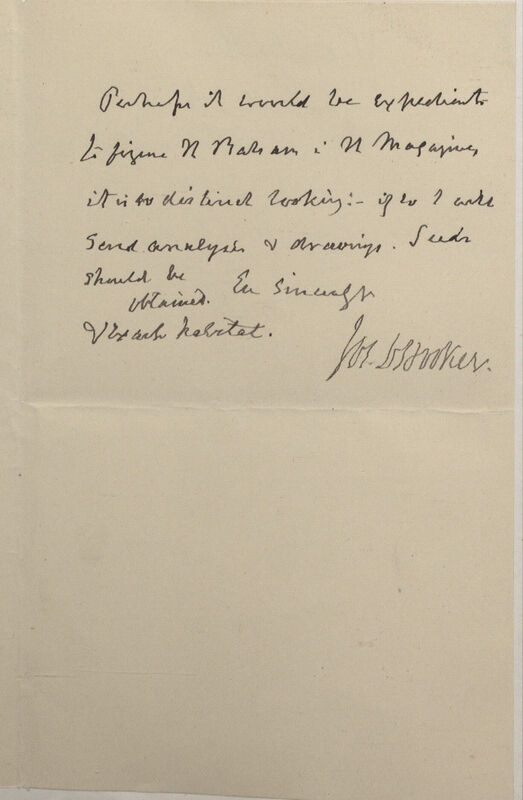 Perhaps it would be expedient
to figure the Balsam in the Magazine,
it is so distinct looking:- if so I will
send analysis & drawings. Seeds
should be
obtained. Ev sincerely
& exact habitat.
Jos. D Hooker.